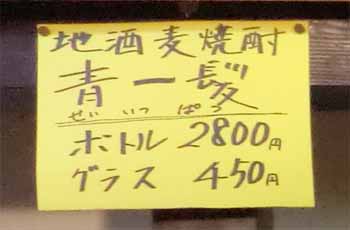 地酒麦焼酎
青一髪
せいいっぱつ
ボトル 2800円
グラス 450円